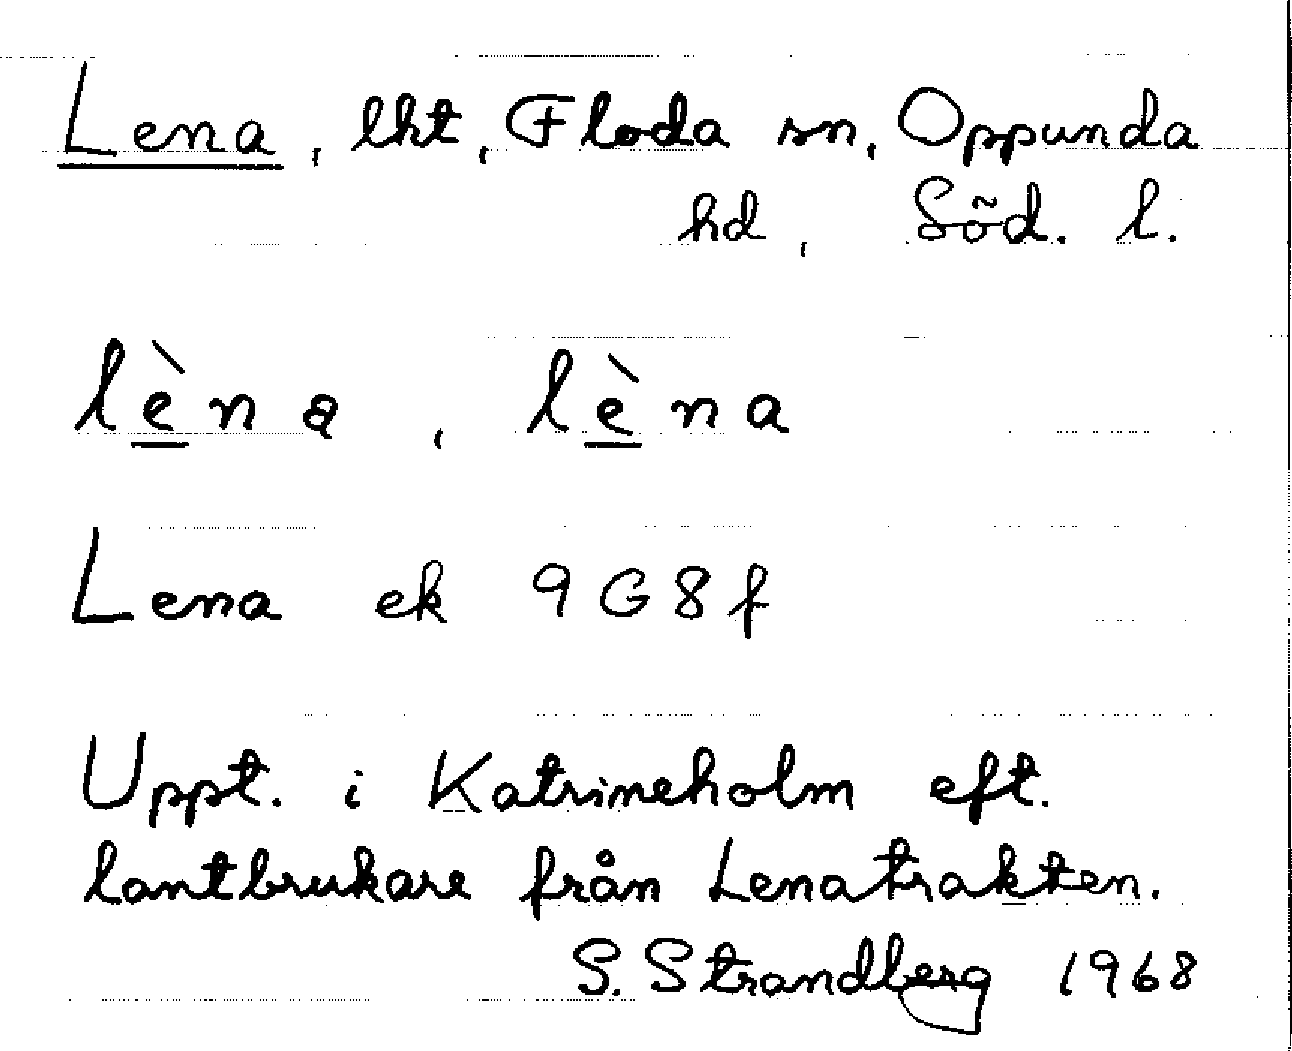 Lena, lht, Floda sn, Oppunda
hd, Söd. l.
lèna, lèna
Lena ek 9G8f
Uppt. i Katrineholm eft.
lantbrukare från Lenatrakten.
S. Strandberg 1968